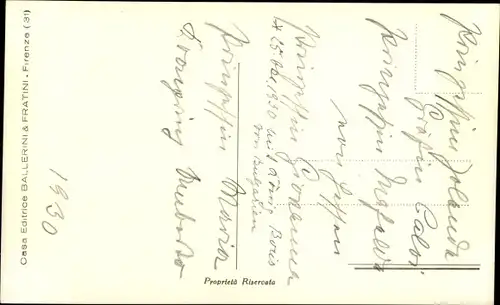 Prinzessin Jolanda
Gräfin Calvi
Prinzessin Mafalda
von Hessen
Prinzessin Giovanna
25 Okt 1930 mit König Boris
von Bulgarien
Prinzessin Maria
Kronprinz Umberto
1930
Casa Editrice BALLERINI & FRATINI - Firenze (31)
Proprietà Riservata